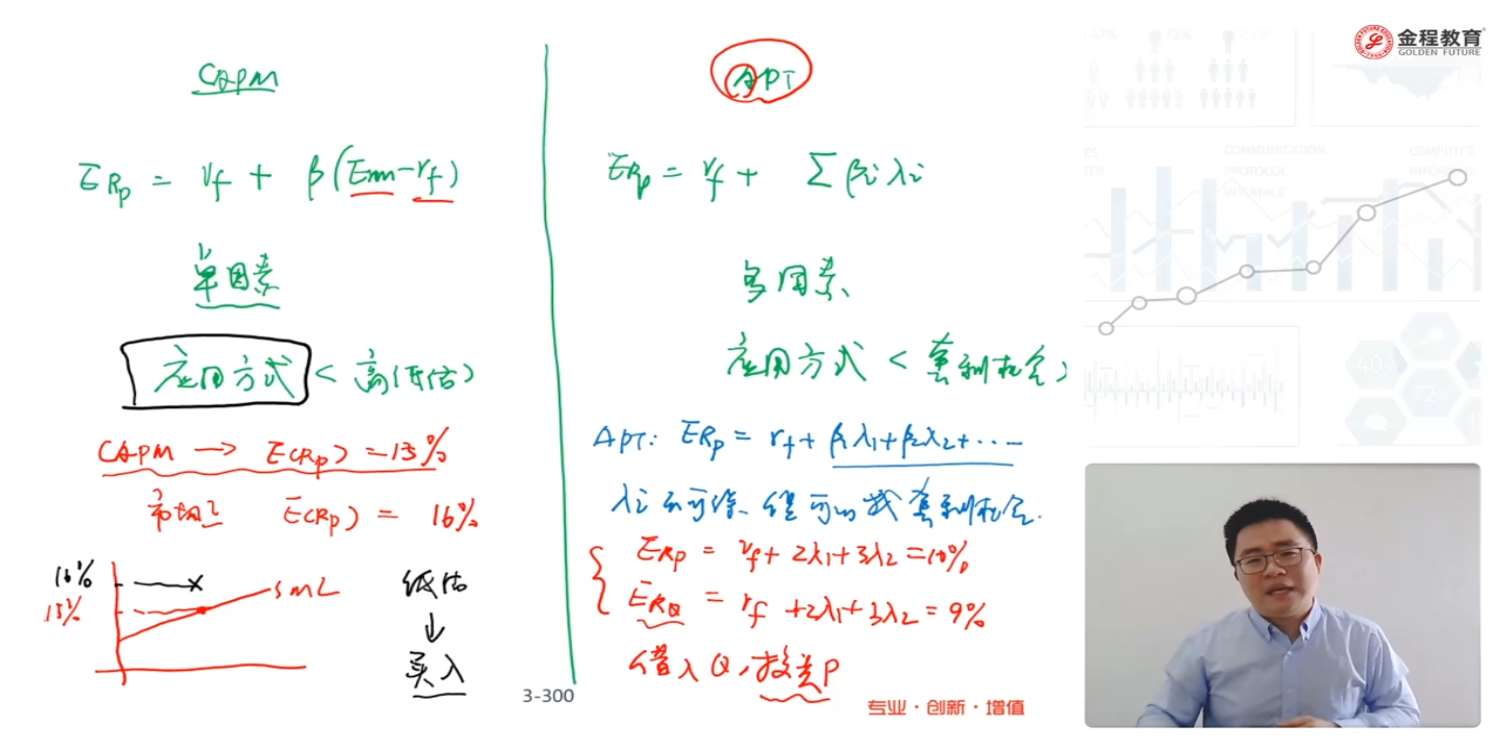 CAPM
ERp = rf + β(Erm-rf)
单因素
应用方式 < 高(低估)
CAPM → E(Rp) = 15%
市场上 E(Rp) = 16%
16%
15%
SML
低估
↓
买入
APT
ERp = rf + Σβiλi
多因素
应用方式 < 套利机会)
APT: ERp = rf + β1λ1+β2λ2+……
λi不可得、但可以找套利机会.
ERp = rf + 2λ1+3λ2 = 10%
ERQ = rf +2λ1+3λ2 = 9%
借入Q,投资P
3-300
专业·创新·增值
金程教育
GOLDEN FUTURE